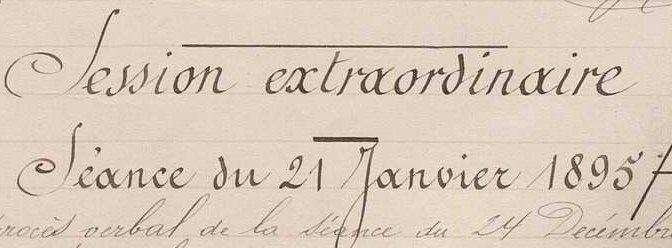 Session extraordinaire
Séance du 21 Janvier 1895
procès verbal de la séance du 24 Décembre